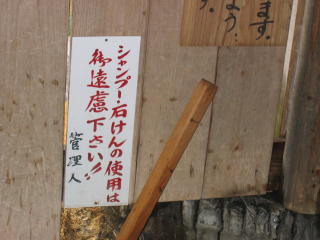 シャンプー・石けんの使用は
御遠慮下さい!!
管理人
ます.
よう
す.